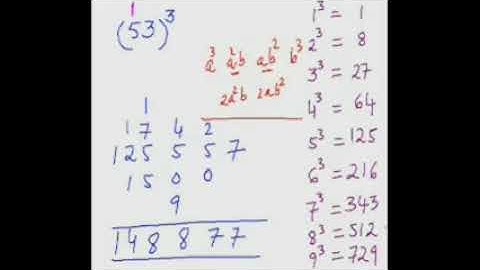 1
(53)³
a³ a²b ab² b³
2a²b 2ab²
1
1 7 4 2
125 5 5 7
15 0 0
9
148 8 77
1³ = 1
2³ = 8
3³ = 27
4³ = 64
5³ = 125
6³ = 216
7³ = 343
8³ = 512
9³ = 729